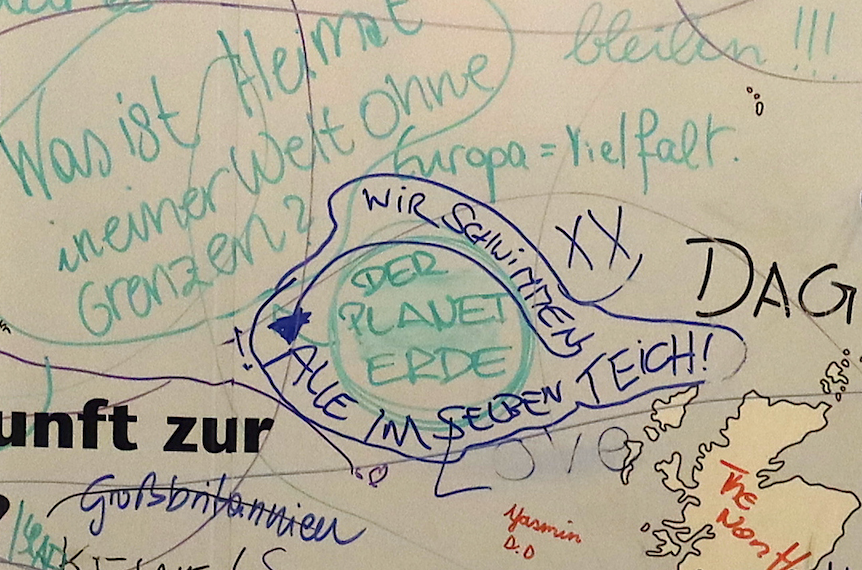 bleiben !!!
Was ist Heimat
in einer Welt ohne
Grenzen?
Europa = Vielfalt.
WIR SCHWIMMEN
ALLE IM SELBEN TEICH!
DER
PLANET
ERDE
XX
DAG
unft zur
Großbritannien
Love
Yasmin
D.D
The
North